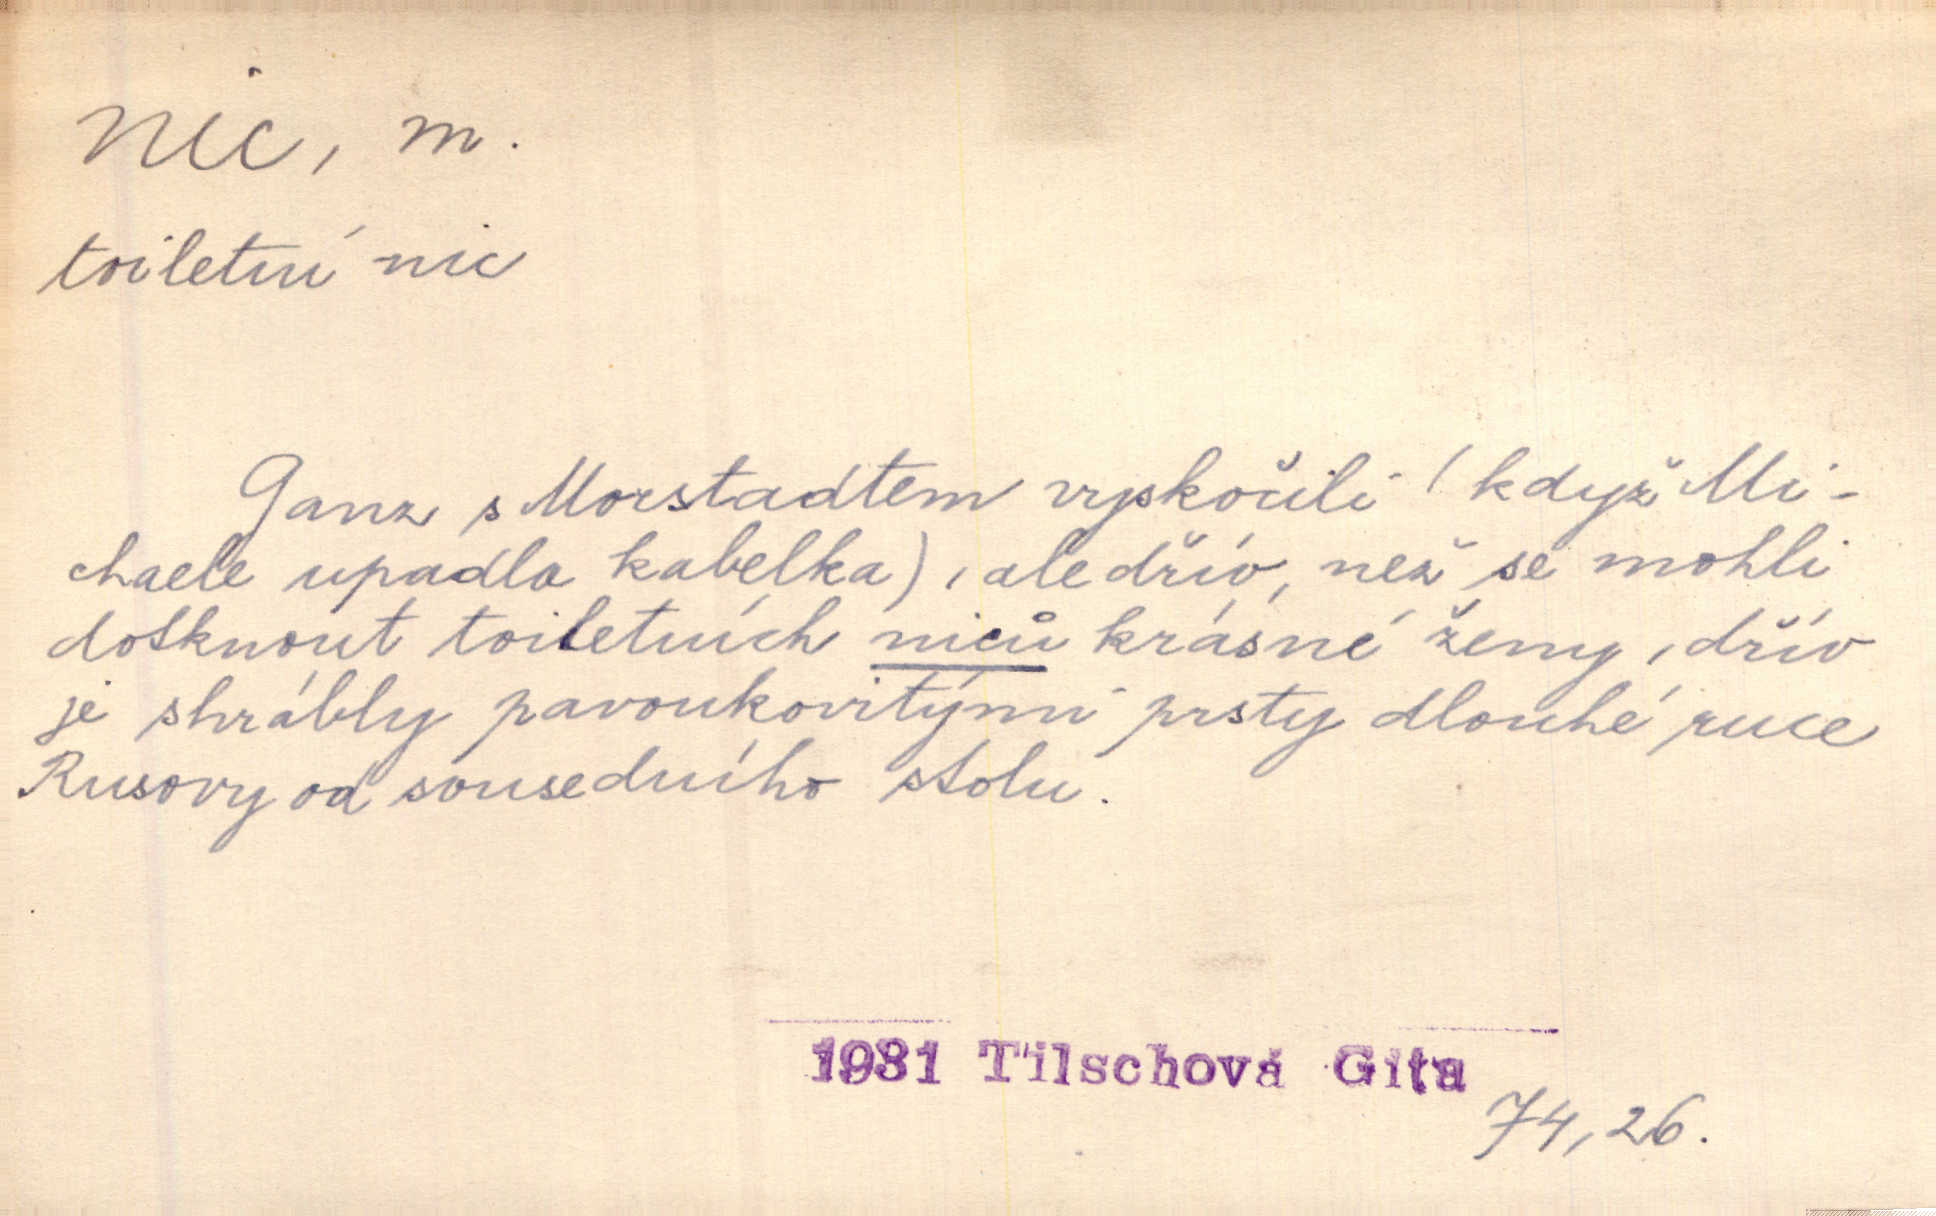 nic, m.
toiletní nic
Ganz s Morstadtem vyskočili (když Mi-
chaele upadla kabelka), ale dřív, než se mohli
dotknout toiletních niců krásné ženy, dřív
je shrábly pavoukovitými prsty dlouhé ruce
Rusovy od sousedního stolu.
1931 Tilschová Gita
74, 26.